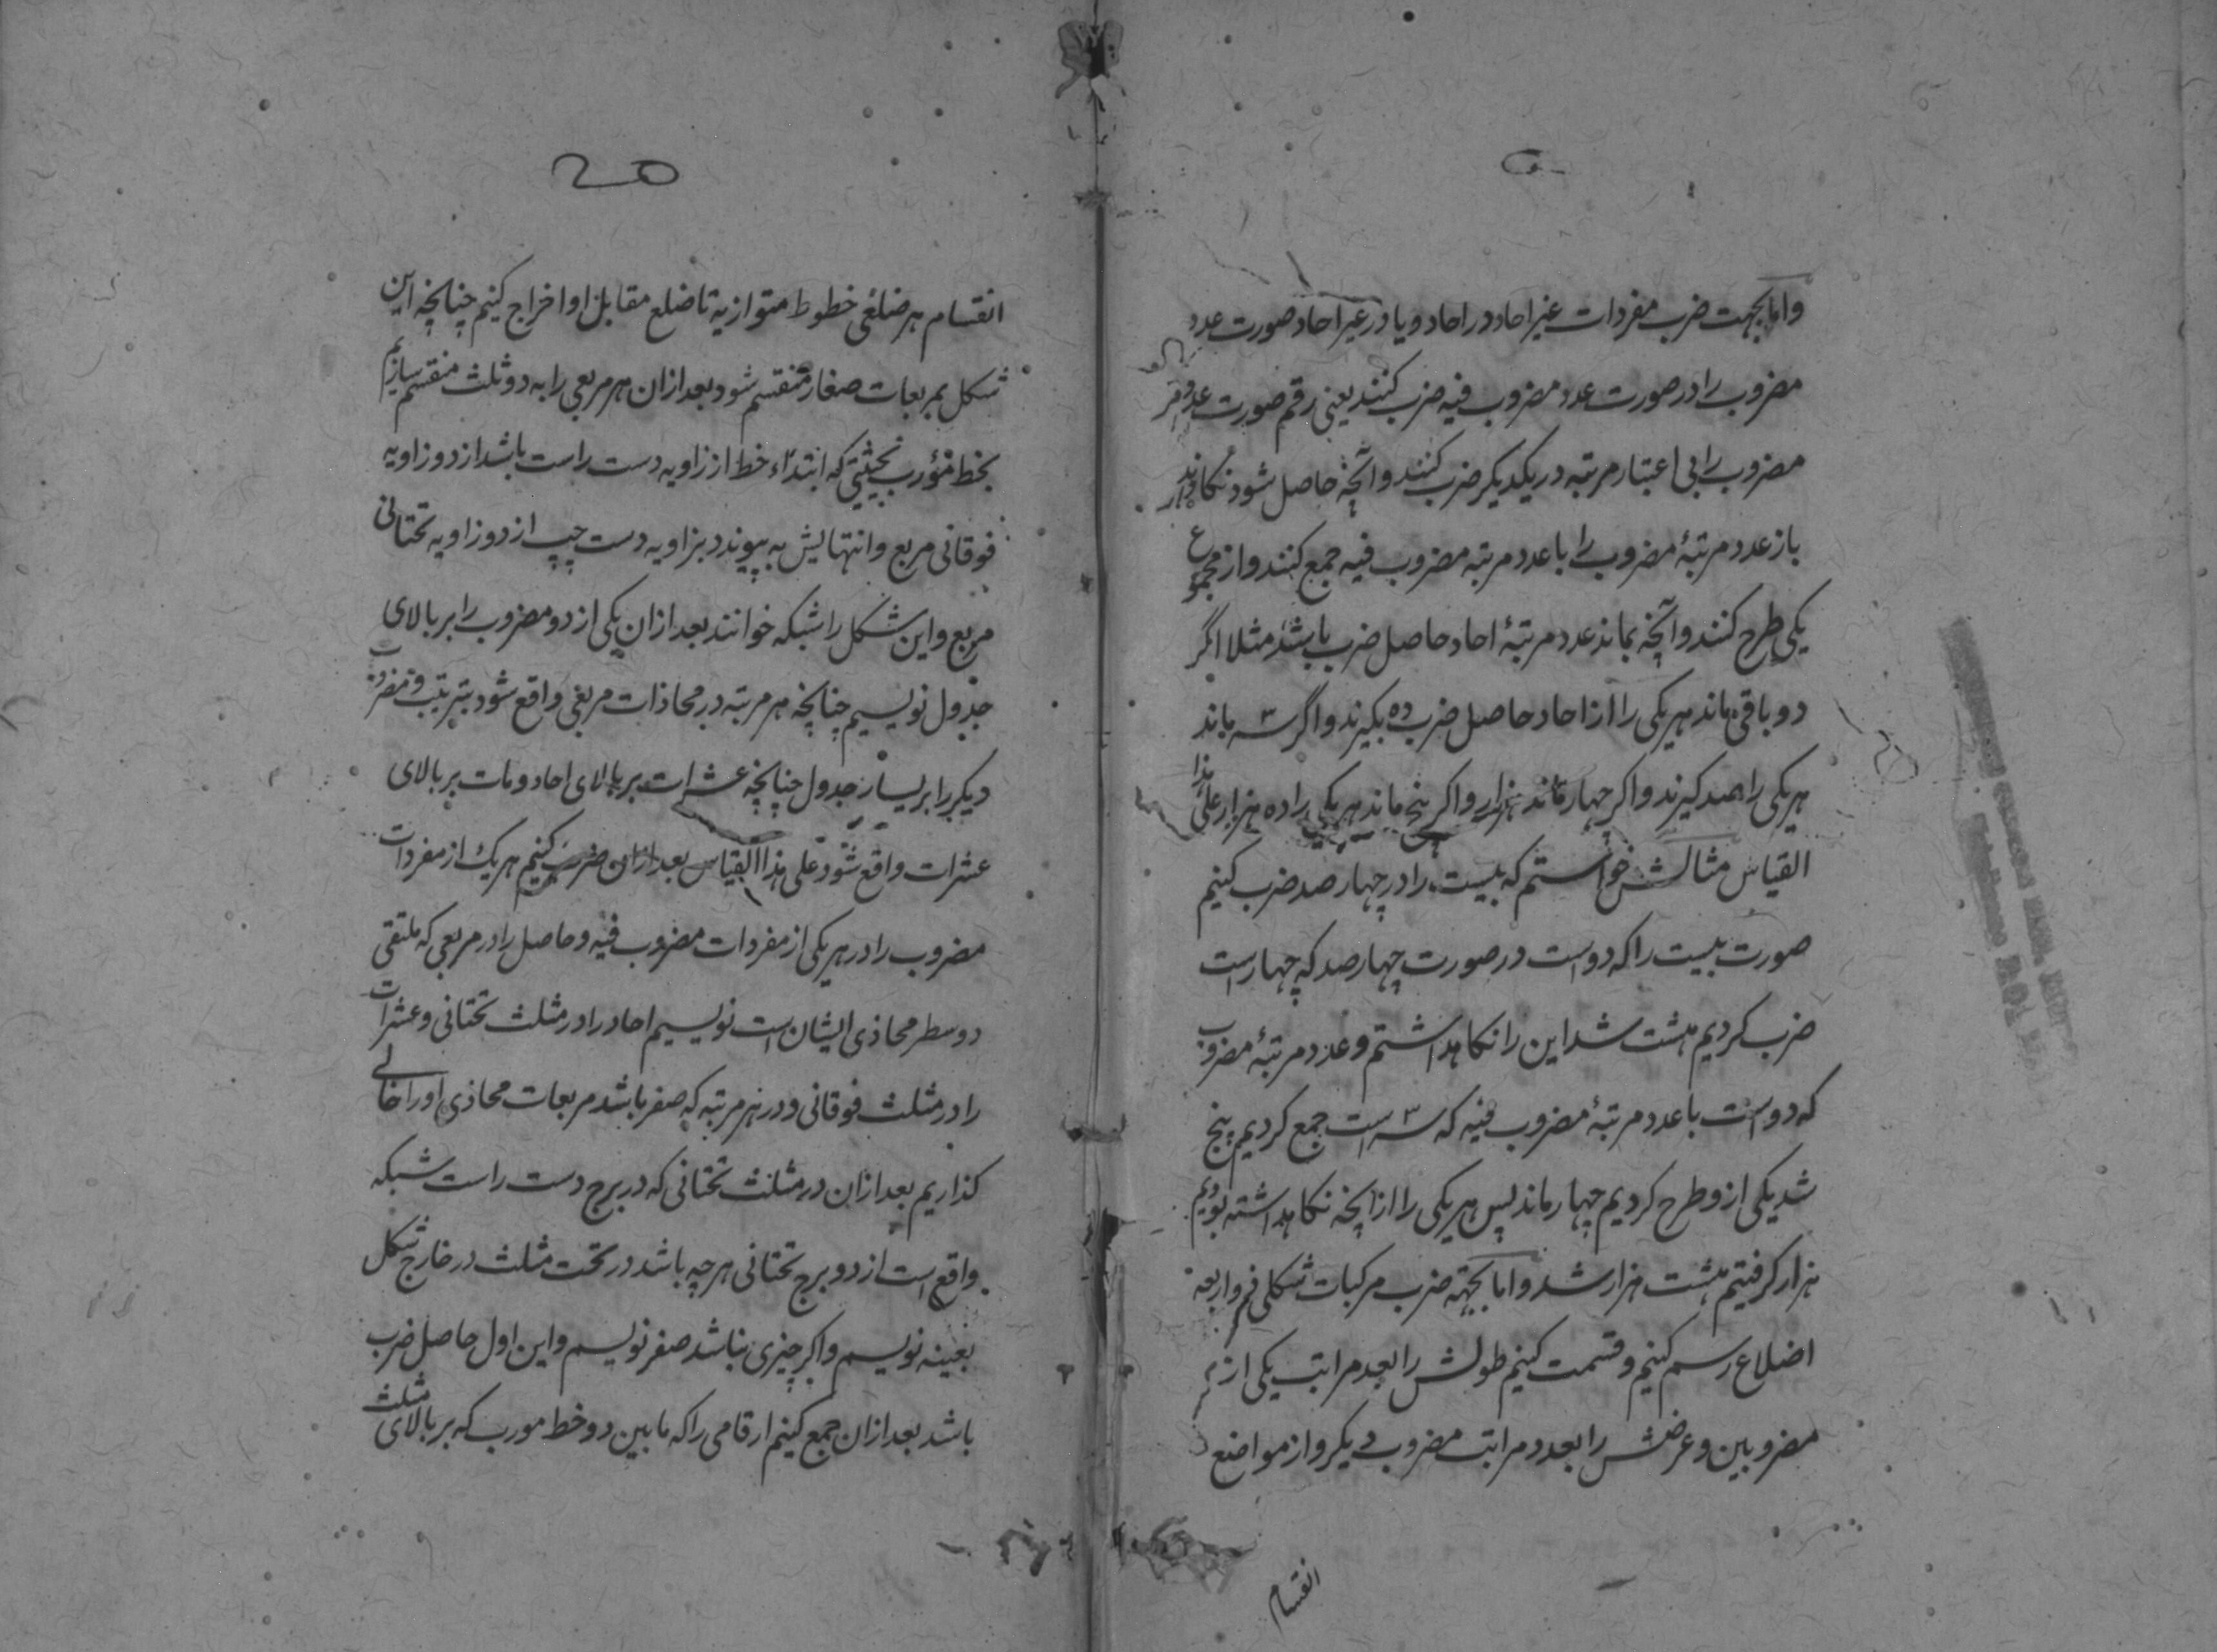 واما بجهت ضرب مفردات غیر احاد در احاد و یا در غیر احاد صورت عدد
مضروب را در صورت عدد مضروب فیه ضرب کنند یعنی رقم صورت عدد
مضروب را بی اعتبار مرتبه در یکدیکر ضرب کنند و آنچه حاصل شود نکاه دارند
باز عدد مرتبهٔ مضروب را با عدد مرتبه مضروب فیه جمع کنند و از مجموع
یکی طرح کنند و آنچه بماند عدد مرتبهٔ احاد حاصل ضرب باشد مثلا اگر
دو باقی ماند هر یکی را از احاد حاصل ضرب ده بکیرند و اگر سه ماند
هر یکی را صد کیرند و اکر چهار ماند هزار و اکر پنج ماند هر یکی را ده هزار علی هذا
القیاس مثالش خواستم که بیست را در چهار صد ضرب کنیم
صورت بیست را که دو است در صورت چهار صد که چهار است
ضرب کردیم هشت شد این را نکاهداشتم و عدد مرتبهٔ مضروب
که دو است با عدد مرتبهٔ مضروب فیه که سه است جمع کردیم پنج
شد یکی از و طرح کردیم چهار ماند پس هر یکی را از انچه نکاهداشته بودیم
هزار کرفتیم هشت هزار شد و اما بجهته ضرب مرکبات شکلی ذو اربعه
اضلاع رسم کنیم و قسمت کنیم طولش را بعد مراتب یکی از
مضروبین و عرضش را بعدد مراتب مضروب دیکر و از مواضع
انقسام
20
انقسام هر ضلعی خطوط متوازیه تا ضلع مقابل او اخراج کنیم چنانچه این
شکل بمربعات صغار منقسم شود بعد ازان هر مربعی را به دو مثلث منقسم سازیم
بخط مؤرب بحیثیتی که ابتداء خط از زاویه دست راست باشد از دو زاویه
فوقانی مربع و انتهایش به پیوندد بزاویه دست چپ از دو زاویه تحتانی
مربع و این شکل را شبکه خوانند بعد ازان یکی از دو مضروب را بر بالای
جدول نویسیم چنانچه هر مرتبه در محاذات مربعی واقع شود بترتیب و مضروب
دیکر را بر یسار جدول چنانچه عشرات بر بالای احاد و مات بر بالای
عشرات واقع شود و علی هذا القیاس بعد ازان ضرب کنیم هر یک از مفردات
مضروب را در هر یکی از مفردات مضروب فیه و حاصل را در مربعی که ملتقی
دو سطر محاذی ایشان است نویسیم احاد را در مثلث تحتانی و عشرات
را در مثلث فوقانی و در هر مرتبه که صفر باشد مربعات محاذی او را خالی
کذاریم بعد ازان در مثلث تحتانی که در برج دست راست شبکه
واقع است از دو برج تحتانی هر چه باشد در تحت مثلث در خارج شکل
بعینه نویسم و اکر چیزی نباشد صفر نویسم و این اول حاصل ضرب
باشد بعد ازان جمع کنیم ارقامی را که مابین دو خط مورب که بر بالای مثلث